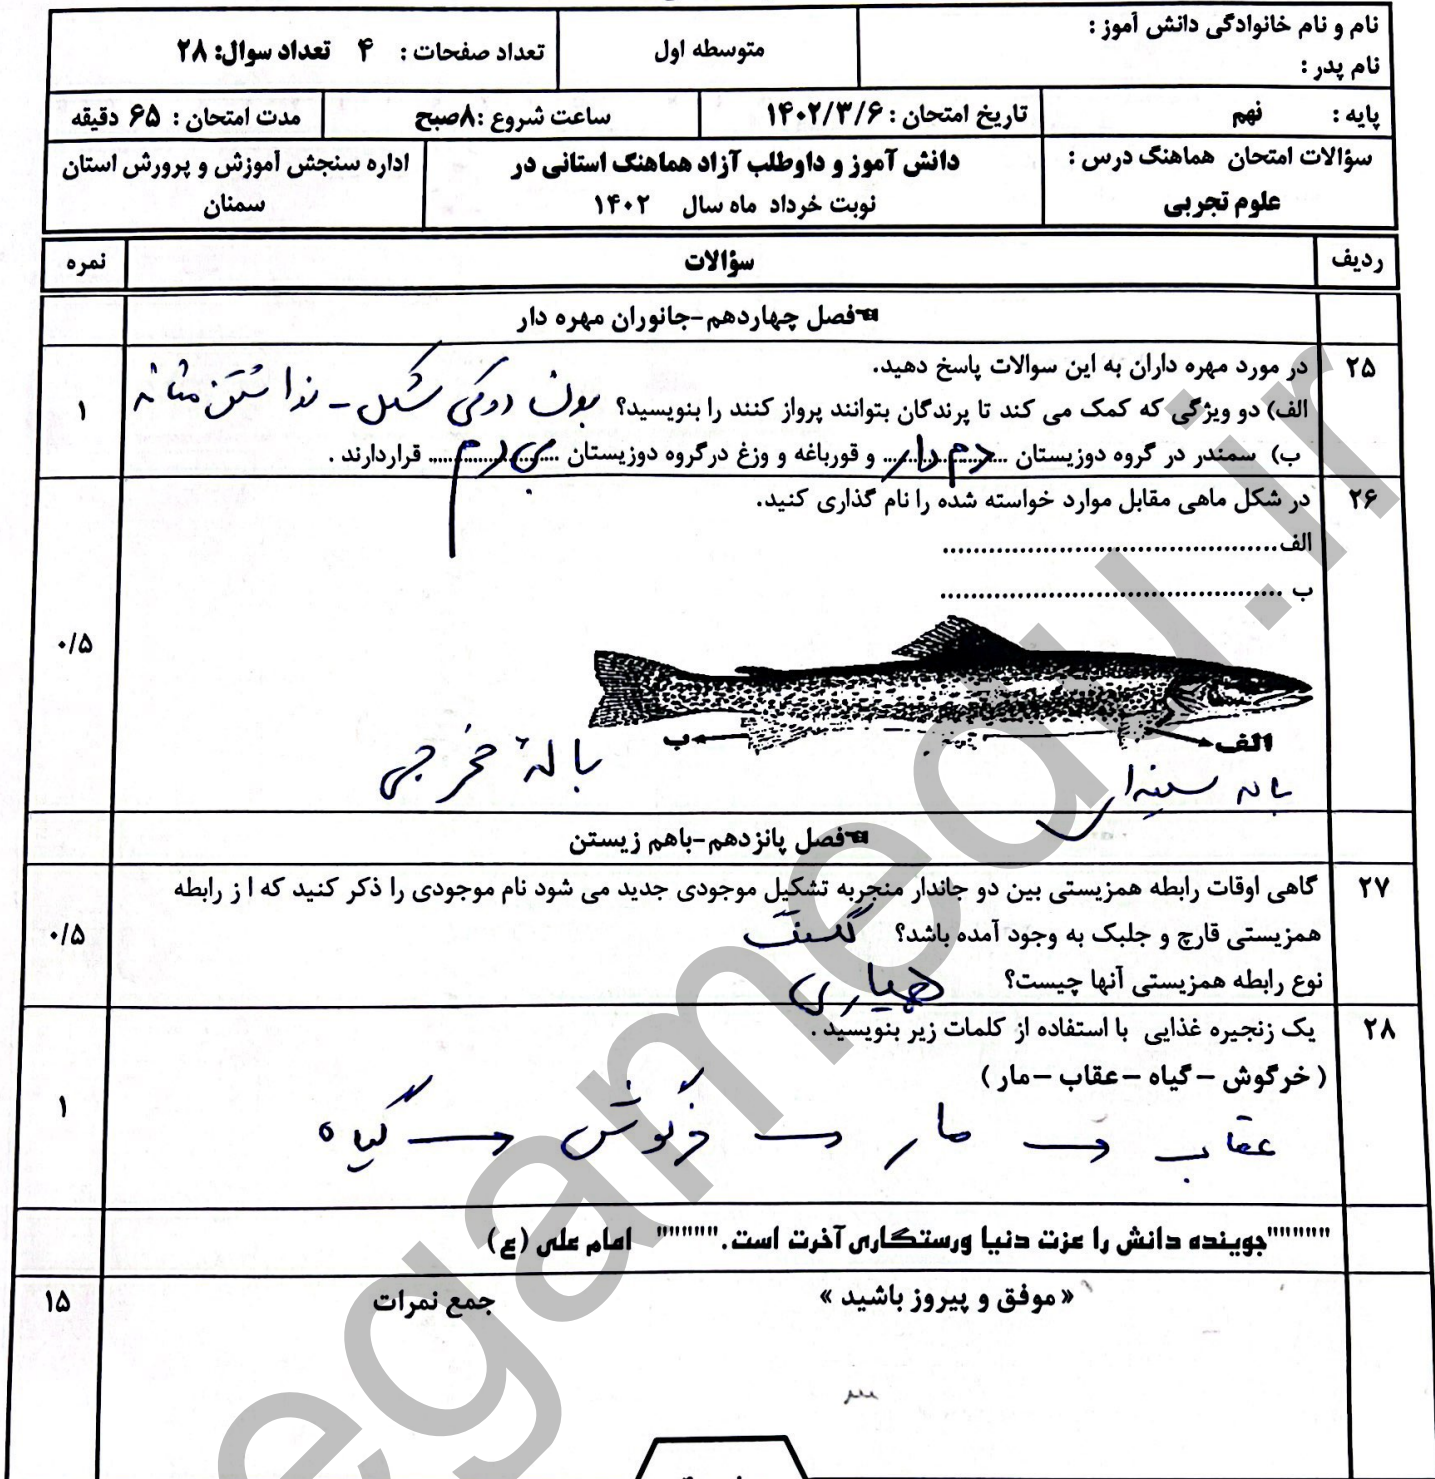 نام و نام خانوادگی دانش آموز :
نام پدر :
متوسطه اول
تعداد صفحات : ۴ تعداد سوال: ۲۸
پایه : نهم
تاریخ امتحان : ۱۴۰۲/۳/۶
ساعت شروع :۸صبح
مدت امتحان : ۶۵ دقیقه
سؤالات امتحان هماهنگ درس :
علوم تجربی
دانش آموز و داوطلب آزاد هماهنگ استانی در
نوبت خرداد ماه سال ۱۴۰۲
اداره سنجش آموزش و پرورش استان
سمنان
ردیف سؤالات نمره
فصل چهاردهم-جانوران مهره دار
۲۵ در مورد مهره داران به این سوالات پاسخ دهید.
الف) دو ویژگی که کمک می کند تا پرندگان بتوانند پرواز کنند را بنویسید؟ بدن دوکی شکل - نداشتن مثانه ۱
ب) سمندر در گروه دوزیستان دم دار و قورباغه و وزغ درگروه دوزیستان بی دم قراردارند .
۲۶ در شکل ماهی مقابل موارد خواسته شده را نام گذاری کنید.
الف............................................
ب .............................................
۰/۵
الف ب
باله سینه‌ای
بالهٔ مخرجی
فصل پانزدهم-باهم زیستن
۲۷ گاهی اوقات رابطه همزیستی بین دو جاندار منجربه تشکیل موجودی جدید می شود نام موجودی را ذکر کنید که ا ز رابطه
همزیستی قارچ و جلبک به وجود آمده باشد؟ گلسنگ ۰/۵
نوع رابطه همزیستی آنها چیست؟ همیاری
۲۸ یک زنجیره غذایی با استفاده از کلمات زیر بنویسید .
( خرگوش – گیاه – عقاب –مار )
۱
عقاب ← مار ← خرگوش ← گیاه
""""""جوینده دانش را عزت دنیا ورستگاری آخرت است.""""""" امام علی (ع)
« موفق و پیروز باشید » جمع نمرات ۱۵
egamedu.ir